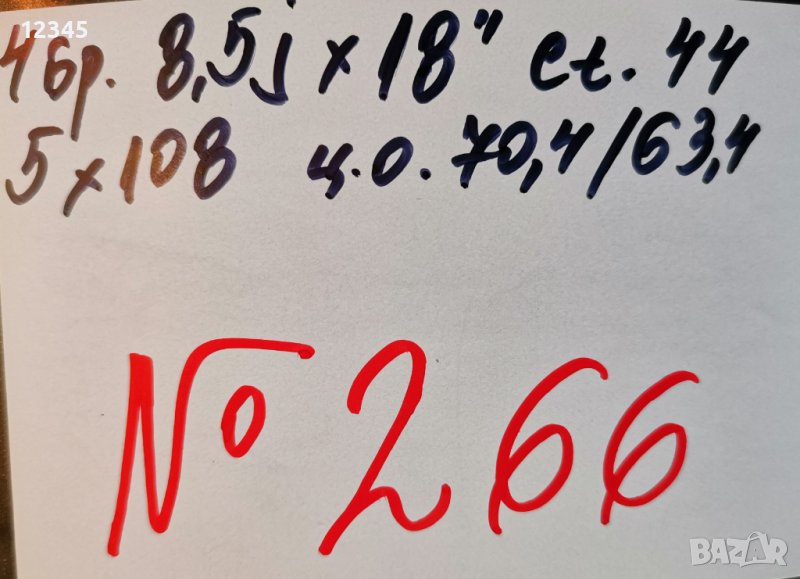 12345
4бр. 8,5j x 18" et. 44
5 x 108 ц.о. 70,4/63,4
№ 266
BAZAR